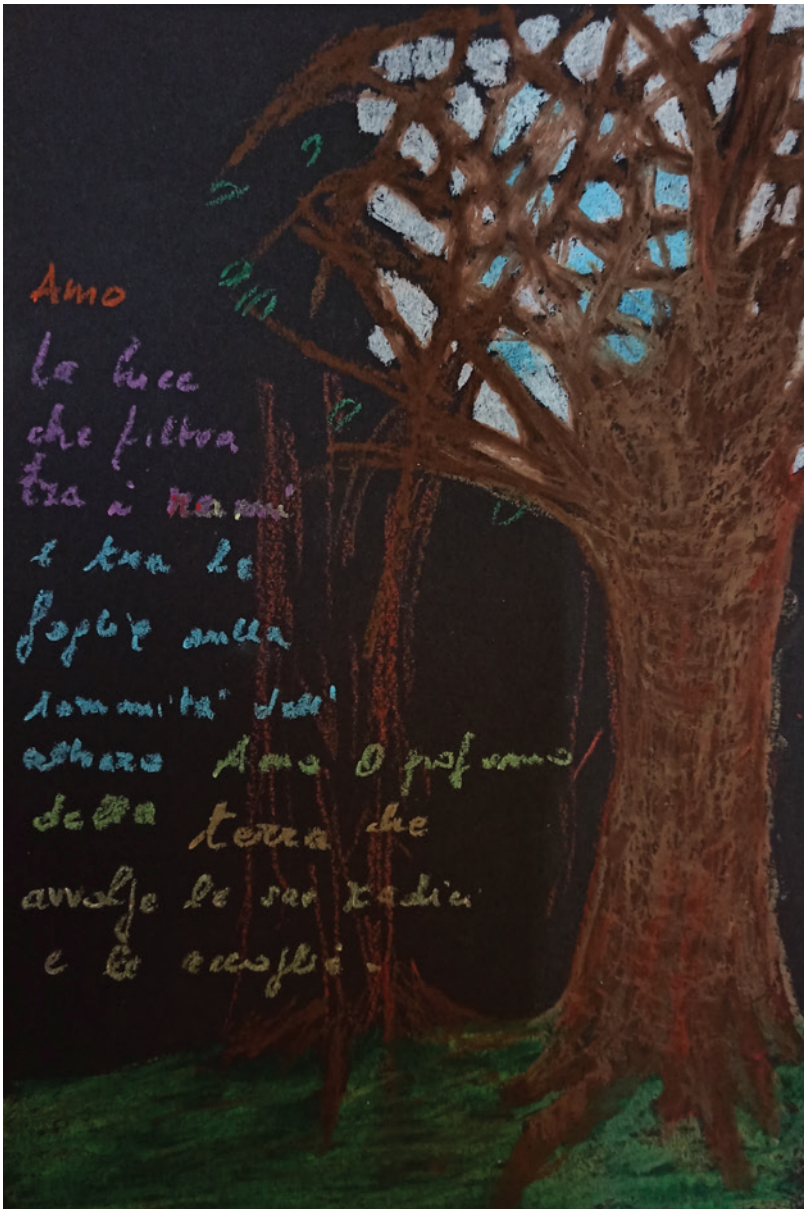 Amo
la luce
che filtra
tra i rami
e tra le
foglie sulla
sommita' dell'
albero Amo il profumo
della terra che
avvolge le sue radici
e le accoglie.